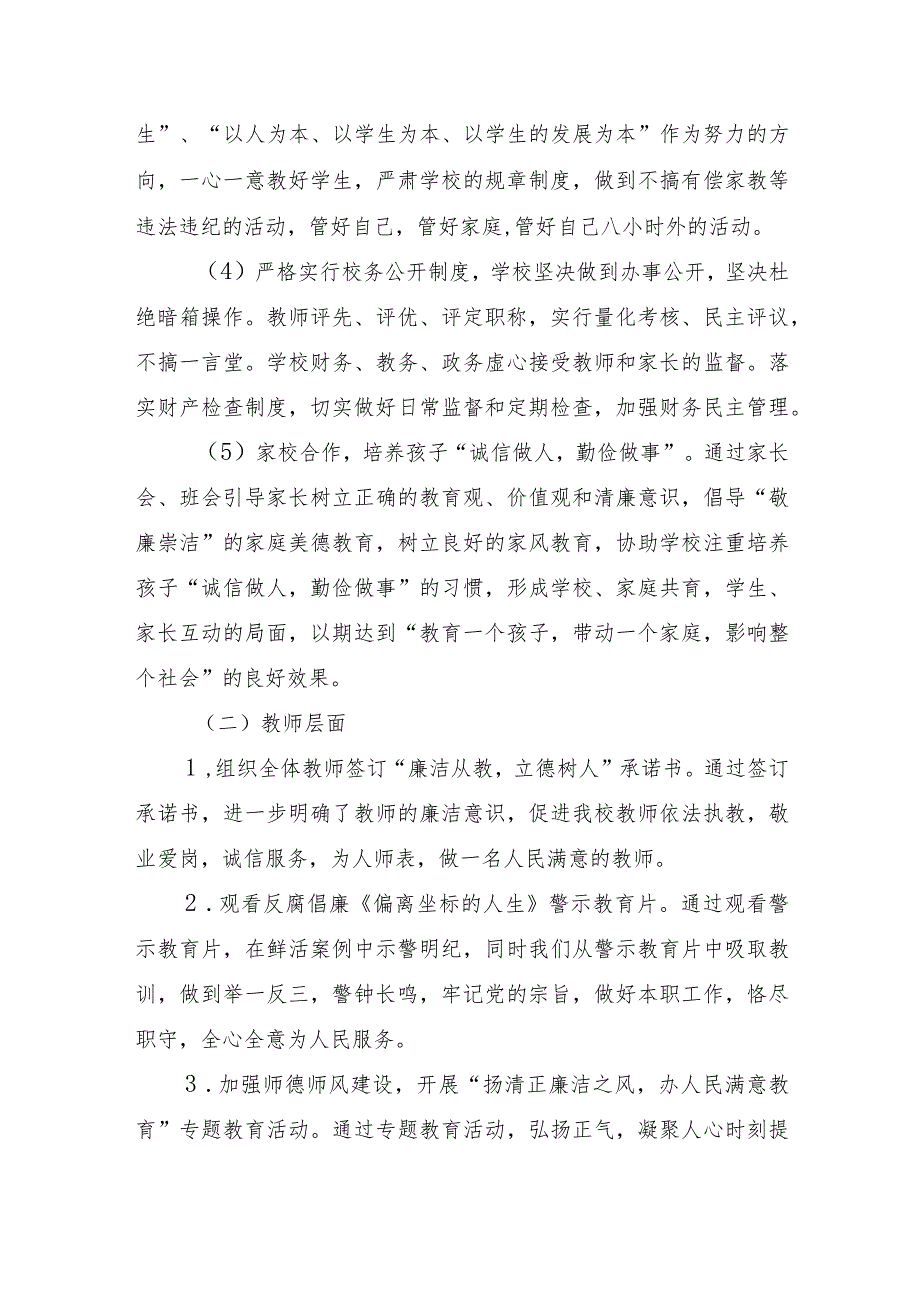 生”、“以人为本、以学生为本、以学生的发展为本”作为努力的方
向，一心一意教好学生，严肃学校的规章制度，做到不搞有偿家教等
违法违纪的活动，管好自己，管好家庭,管好自己八小时外的活动。
（4）严格实行校务公开制度，学校坚决做到办事公开，坚决杜
绝暗箱操作。教师评先、评优、评定职称，实行量化考核、民主评议，
不搞一言堂。学校财务、教务、政务虚心接受教师和家长的监督。落
实财产检查制度，切实做好日常监督和定期检查，加强财务民主管理。
（5）家校合作，培养孩子“诚信做人，勤俭做事”。通过家长
会、班会引导家长树立正确的教育观、价值观和清廉意识，倡导“敬
廉崇洁”的家庭美德教育，树立良好的家风教育，协助学校注重培养
孩子“诚信做人，勤俭做事”的习惯，形成学校、家庭共育，学生、
家长互动的局面，以期达到“教育一个孩子，带动一个家庭，影响整
个社会”的良好效果。
（二）教师层面
1,组织全体教师签订“廉洁从教，立德树人”承诺书。通过签订
承诺书，进一步明确了教师的廉洁意识，促进我校教师依法执教，敬
业爱岗，诚信服务，为人师表，做一名人民满意的教师。
2.观看反腐倡廉《偏离坐标的人生》警示教育片。通过观看警
示教育片，在鲜活案例中示警明纪，同时我们从警示教育片中吸取教
训，做到举一反三，警钟长鸣，牢记党的宗旨，做好本职工作，恪尽
职守，全心全意为人民服务。
3.加强师德师风建设，开展“扬清正廉洁之风，办人民满意教
育”专题教育活动。通过专题教育活动，弘扬正气，凝聚人心时刻提